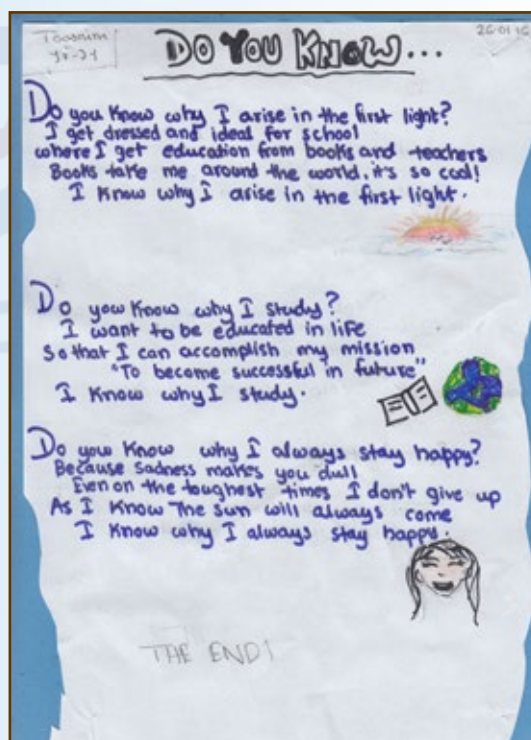 Tasnim
26.01.16
DO YOU KNOW...
Do you know why I arise in the first light?
I get dressed and ideal for school
where I get education from books and teachers
Books take me around the world, it's so cool!
I know why I arise in the first light.
Do you know why I study?
I want to be educated in life
So that I can accomplish my mission
"To become successful in future"
I know why I study.
Do you know why I always stay happy?
Because sadness makes you dull
Even on the toughest times I don't give up
As I know the sun will always come
I know why I always stay happy.
THE END!